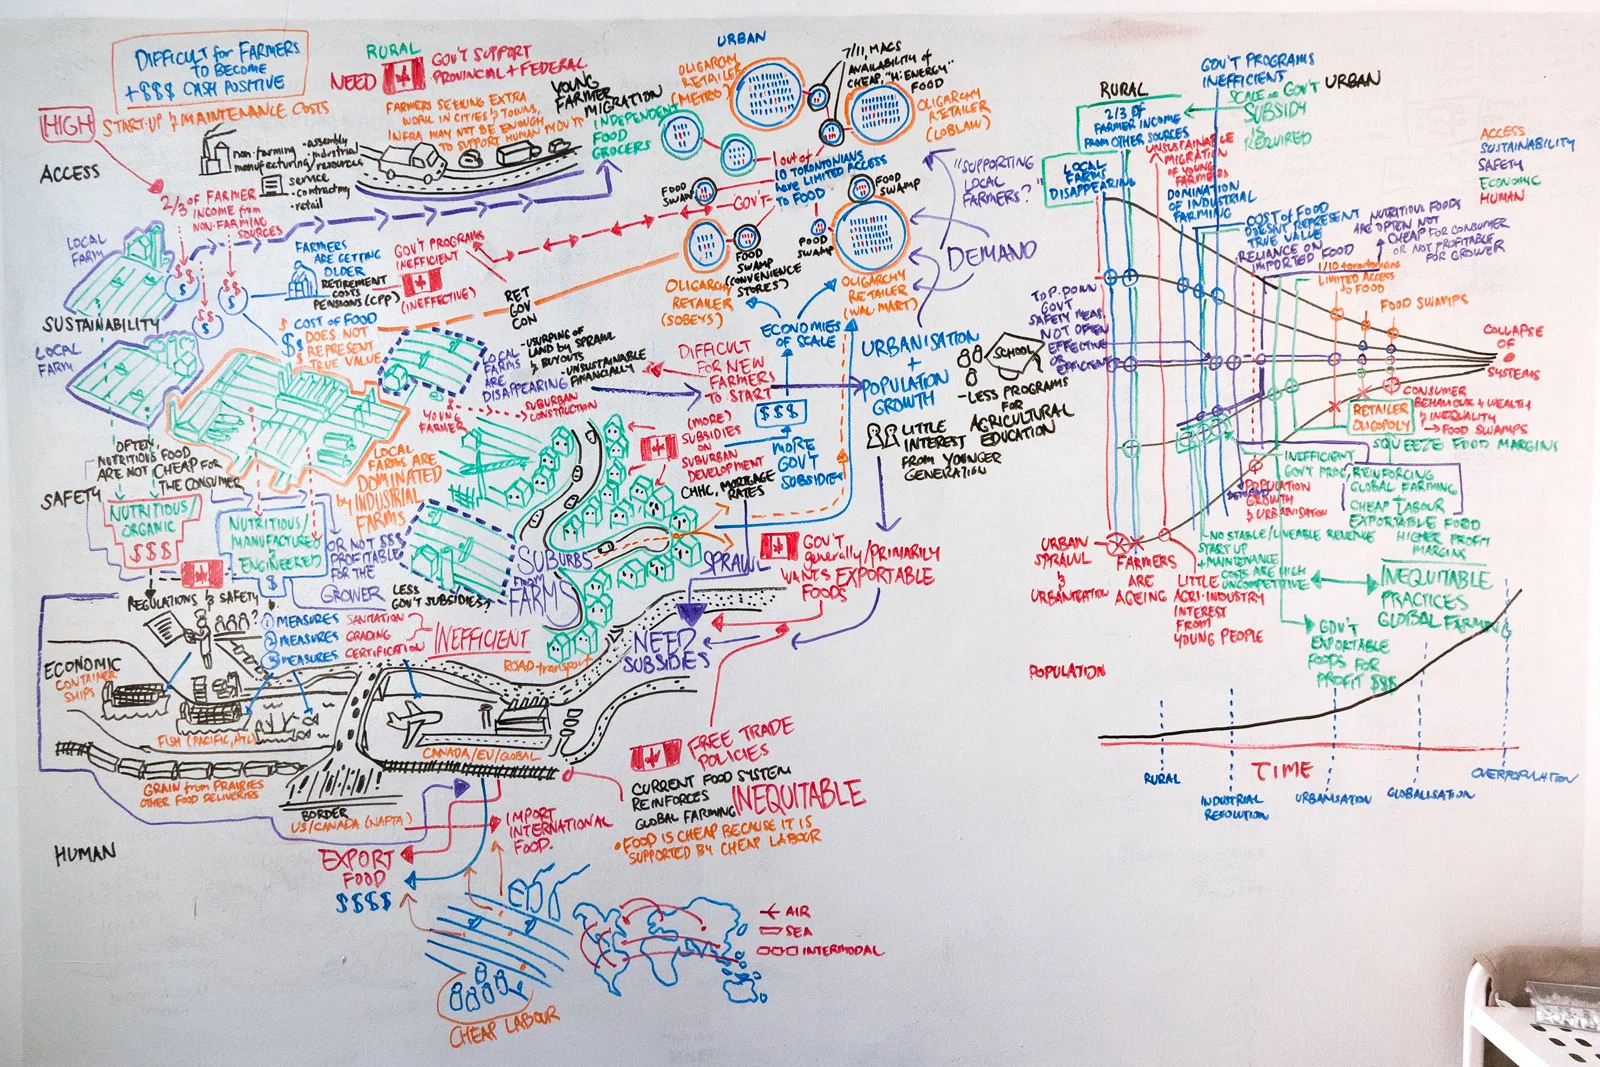 DIFFICULT for FARMERS
TO BECOME
+$$$ CASH POSITIVE
HIGH
START-UP & MAINTENANCE COSTS
RURAL
NEED
GOV'T SUPPORT
PROVINCIAL + FEDERAL
FARMERS SEEKING EXTRA
WORK IN CITIES & TOWNS,
INFRA MAY NOT BE ENOUGH
TO SUPPORT HUMAN MOV'T
YOUNG
FARMER
MIGRATION
INDEPENDENT
FOOD
GROCERS
URBAN
OLIGARCHY
RETAILER
(METRO)
7/11, MACS
AVAILABILITY of
CHEAP, "HI ENERGY"
FOOD
OLIGARCHY
RETAILER
(LOBLAW)
non-farming
manufacturing/resources
- assembly
- industrial
service
- contracting
- retail
ACCESS
2/3 OF FARMER
INCOME from
NON-FARMING
SOURCES
1 out of
10 TORONTONIANS
have LIMITED ACCESS
TO FOOD
FOOD
SWAMP
GOV'T
FOOD
SWAMP
FOOD
SWAMP
FOOD
SWAMP
(CONVENIENCE
STORES)
"SUPPORTING
LOCAL
FARMERS?"
DEMAND
LOCAL
FARM
SUSTAINABILITY
LOCAL
FARM
FARMERS
ARE GETTING
OLDER
RETIREMENT
COSTS
PENSIONS (CPP)
GOV'T PROGRAMS
INEFFICIENT
(INEFFECTIVE)
RET
GOV
CON
OLIGARCHY
RETAILER
(SOBEYS)
OLIGARCHY
RETAILER
(WAL MART)
$ COST OF FOOD
DOES NOT
REPRESENT
TRUE VALUE
LOCAL
FARMS
ARE
DISAPPEARING
- USURPING OF
LAND by SPRAWL
& BUYOUTS
- UNSUSTAINABLE
FINANCIALLY
ECONOMIES
OF SCALE
DIFFICULT
FOR NEW
FARMERS
TO START
URBANISATION
+
POPULATION
GROWTH
SCHOOL
- LESS PROGRAMS
FOR
AGRICULTURAL
EDUCATION
LITTLE
INTEREST
FROM YOUNGER
GENERATION
YOUNG
FARMER
SUBURBAN
CONSTRUCTION
(MORE)
SUBSIDIES
ON
SUBURBAN
DEVELOPMENT
CHHC, MORTGAGE
RATES
$$$
MORE
GOV'T
SUBSIDIES
OFTEN,
NUTRITIOUS FOOD
ARE NOT CHEAP FOR
THE CONSUMER
SAFETY
NUTRITIOUS
ORGANIC
$$$
NUTRITIOUS/
MANUFACTURED
ENGINEERED
$
LOCAL
FARMS ARE
DOMINATED
by INDUSTRIAL
FARMS
OR NOT $$$
PROFITABLE
FOR THE
GROWER
LESS
GOV'T SUBSIDIES?
SUBURBS
FROM
FARMS
SPRAWL
GOV'T
generally/PRIMARILY
WANTS EXPORTABLE
FOODS
NEED
SUBSIDIES
REGULATIONS & SAFETY
① MEASURES SANITATION
② MEASURES GRADING
③ MEASURES CERTIFICATION
INEFFICIENT
ROAD transport
ECONOMIC
CONTAINER
SHIPS
FISH (PACIFIC, ATL)
CANADA/EU/GLOBAL
GRAIN from PRAIRIES
OTHER FOOD DELIVERIES
BORDER
US/CANADA (NAFTA)
HUMAN
FREE TRADE
POLICIES
CURRENT FOOD SYSTEM
REINFORCES
GLOBAL FARMING
INEQUITABLE
• FOOD IS CHEAP BECAUSE IT IS
SUPPORTED BY CHEAP LABOUR
IMPORT
INTERNATIONAL
FOOD.
EXPORT
FOOD
$$$$
CHEAP LABOUR
AIR
SEA
INTERMODAL
RURAL
GOV'T PROGRAMS
INEFFICIENT
SCALE of GOV'T
SUBSIDY
IS
REQUIRED
URBAN
2/3 of
FARMER INCOME
FROM OTHER SOURCES
LOCAL
FARMS
DISAPPEARING
UNSUSTAINABLE
MIGRATION
OF YOUNG
FARMERS
DOMINATION
OF INDUSTRIAL
FARMING
COST of FOOD
DOESN'T REPRESENT
TRUE VALUE
RELIANCE ON
IMPORTED FOOD
NUTRITIOUS FOODS
ARE OFTEN NOT
CHEAP FOR CONSUMER
OR NOT PROFITABLE
FOR GROWER
1/10 torontonians
LIMITED ACCESS
TO FOOD
ACCESS
SUSTAINABILITY
SAFETY
ECONOMIC
HUMAN
TOP-DOWN
GOV'T
SAFETY MEAS.
NOT OFTEN
EFFECTIVE
or EFFICIENT
FOOD SWAMPS
COLLAPSE
OF
SYSTEMS
CONSUMER
BEHAVIOUR + WEALTH
& INEQUALITY
→ FOOD SWAMPS
RETAILER
OLIGOPOLY
SQUEEZE FOOD MARGINS
INEFFICIENT
GOV'T PROG.
DEMAND
POPULATION
GROWTH
& URBANISATION
REINFORCING
GLOBAL FARMING
+
CHEAP LABOUR
EXPORTABLE FOOD
HIGHER PROFIT
MARGINS
URBAN
SPRAWL
&
URBANISATION
FARMERS
ARE
AGEING
NO STABLE/LIVEABLE REVENUE
START UP
+ MAINTENANCE
COSTS ARE HIGH
UNCOMPETITIVE
LITTLE
AGRI-INDUSTRY
INTEREST
FROM
YOUNG PEOPLE
INEQUITABLE
PRACTICES
GLOBAL FARMING
GOV'T
EXPORTABLE
FOODS FOR
PROFIT $$$
POPULATION
RURAL
INDUSTRIAL
REVOLUTION
TIME
URBANISATION
GLOBALISATION
OVERPOPULATION